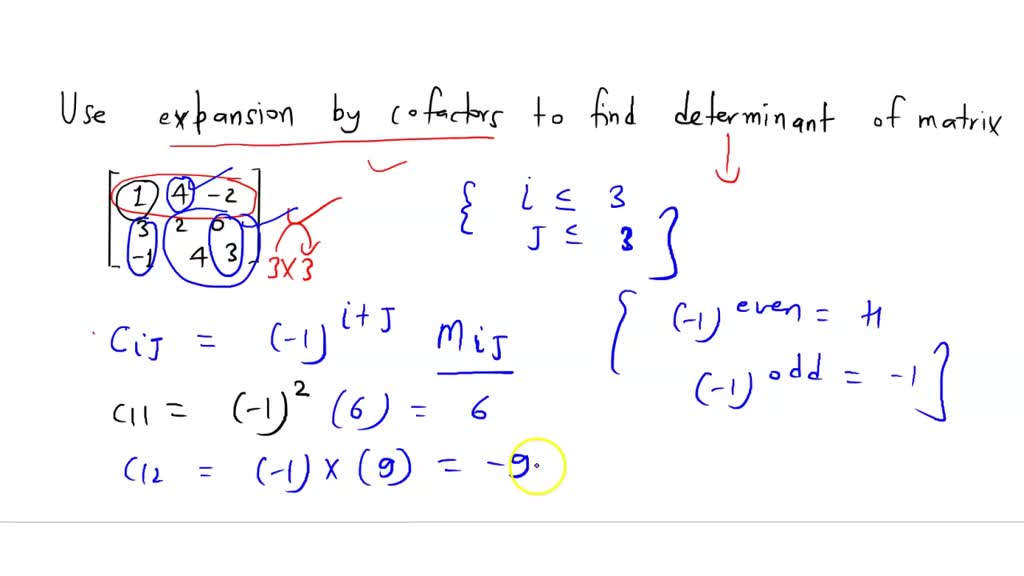 Use expansion by cofactors to find determinant of matrix
1 4 -2
3 2 0
-1 4 3
3x3
{ i ≤ 3
J ≤ 3 }
CiJ = (-1)^i+J MiJ
{ (-1)^even = +1
(-1)^odd = -1 }
C11 = (-1)^2 (6) = 6
C12 = (-1) x (9) = -9.